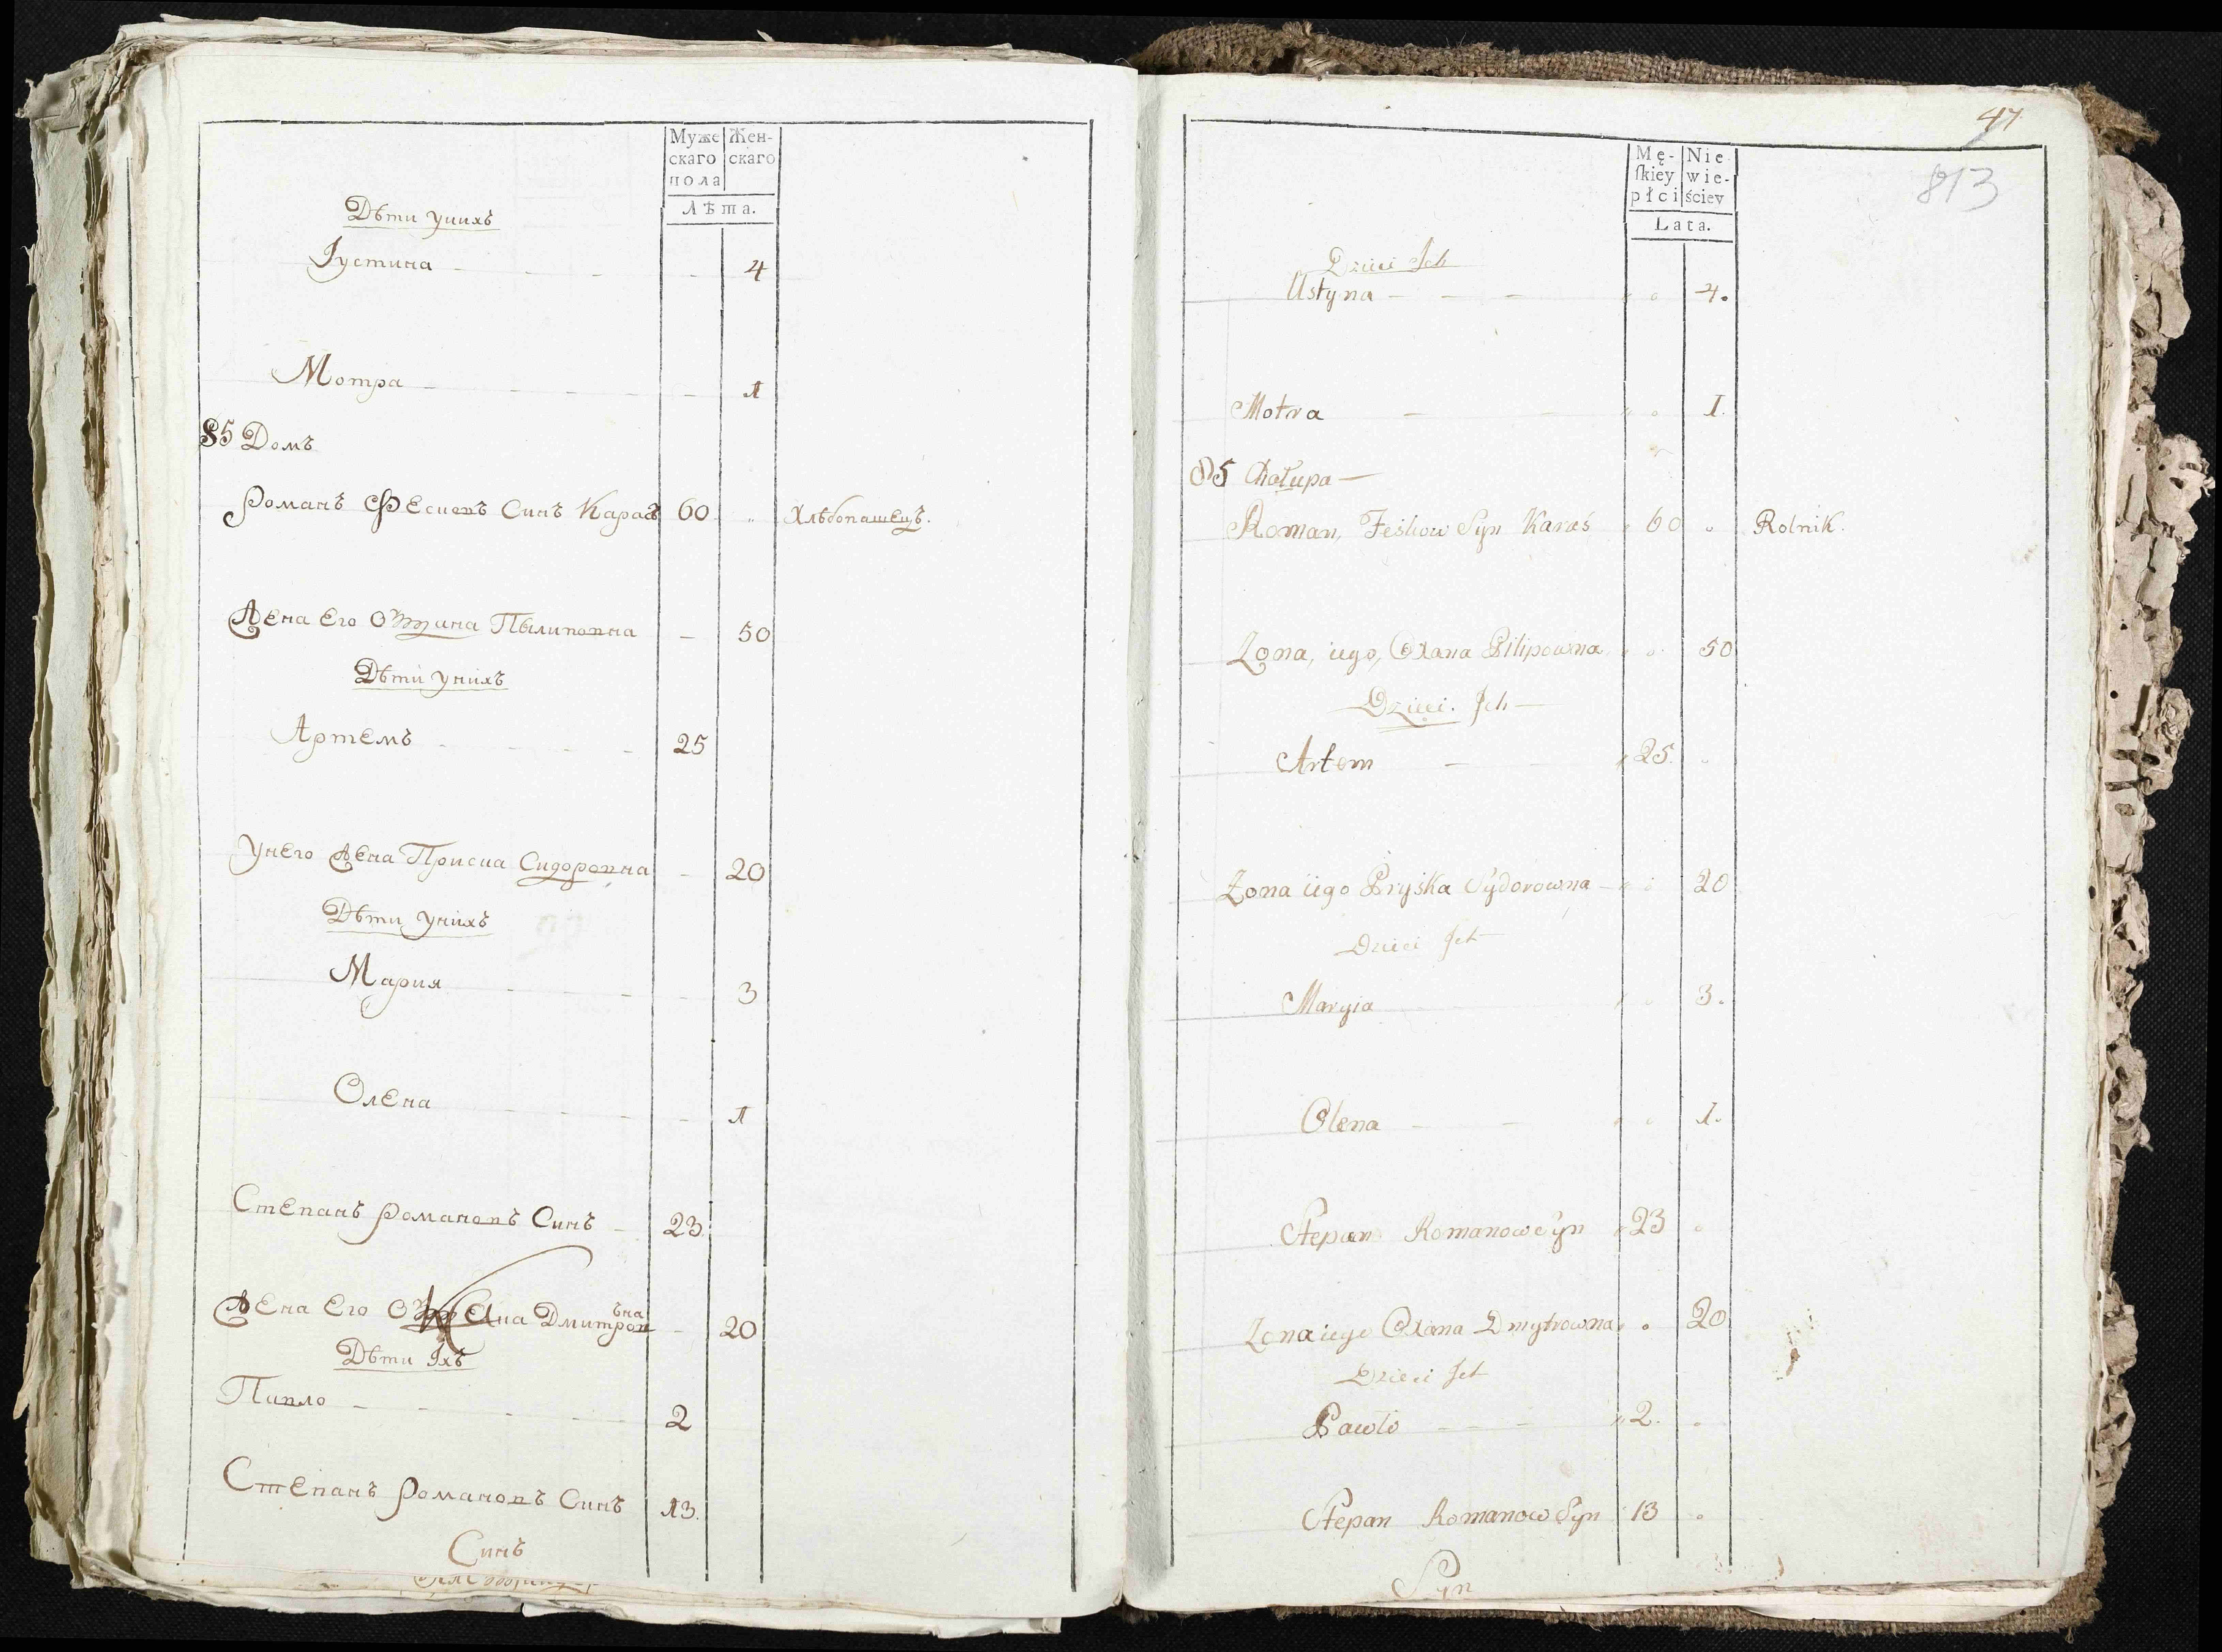 Муже
скаго
пола
Жен-
скаго
Лѣта.
Дѣти унихъ
Іустина 4
Мотра 1
85 Домъ
Романъ Фесковъ Синъ Карась 60 Хлѣбопашецъ.
Жена Его Пылиповна 50
Дѣти унихъ
Артемъ 25
унего Жена Приска Сидоровна 20
Дѣти унихъ
Мария 3
Олена 1
Степанъ Романовъ Синъ 23
Жена Его Дмитровъна 20
Дѣти Іхъ
Павло 2
Степанъ Романовъ Синъ 13.
Синъ
47
813
Mę-
skiey
płci
Nie
wie-
ściey
Lata.
Dzieci Ich
Ustyna 4.
Motra 1.
85 Chałupa
Roman, Feśkow Syn Karaś 60 Rolnik.
Zona, iego, Oxana Pilipowna 50
Dzieci. Ich
Artem 25.
Zona iego Pryśka Sydorowna 20
Dzieci Ich
Maryia 3.
Olena 1.
Stepan Romanow Syn 23
Zona iego Oxana Dmytrowna 20
Dzieci Ich
Pawło 2.
Stepan Romanow Syn 13
Syn